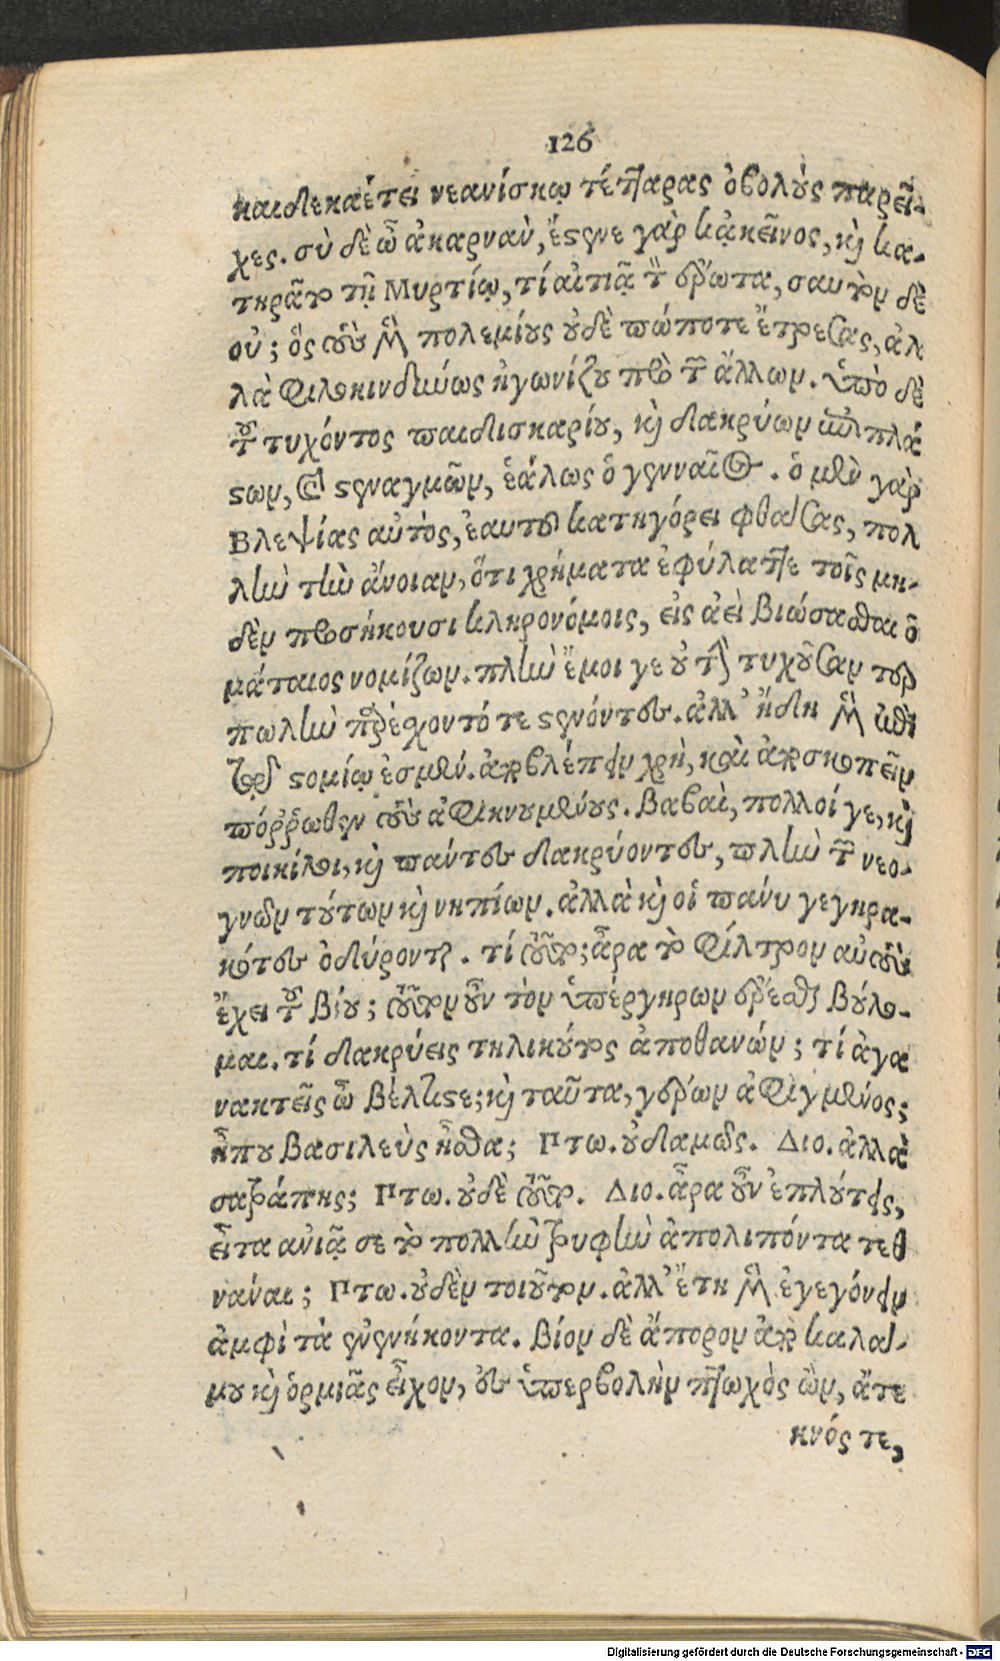 126
καιδεκαέτει νεανίσκῳ τέτταρας ὀβολοὺς παρεῖ-
χες. σὺ δὲ ὦ ἀκαρνὰν, ἔστενε γὰρ κἀκεῖνος, καὶ κα-
τηρᾶτο τῇ Μυρτίῳ, τί αἰτιᾷ τὸν ἔρωτα, σαυτὸν δὲ
οὐ; ὃς τοὺς μὲν πολεμίους οὐδὲ πώποτε ἔτρεσας, ἀλ
λὰ φιλοκινδύνως ἠγωνίζου πρὸ τῶν ἄλλων. ὑπὸ δὲ
τοῦ τυχόντος παιδισκαρίου, καὶ δακρύων ἐπιπλά
στων, καὶ στεναγμῶν, ἑάλως ὁ γενναῖος. ὁ μὲν γὰρ
Βλεψίας αὐτὸς, ἑαυτοῦ κατηγόρει φθάσας, πολ
λὴν τὴν ἄνοιαν, ὅτι χρήματα ἐφύλαττε τοῖς μη-
δὲν προσήκουσι κληρονόμοις, εἰς ἀεὶ βιώσασθαι ὁ
μάταιος νομίζων. πλὴν ἔμοι γε οὐ τὴν τυχοῦσαν τερ
πωλὴν παρέχοντό τε στένοντες. ἀλλ' ἤδη μὲν ἐπὶ
τῷ στομίῳ ἐσμέν. ἀποβλέπειν χρὴ, καὶ ἀποσκοπεῖν
πόῤῥωθεν τοὺς ἀφικνουμένους. βαβαὶ, πολλοί γε, καὶ
ποικίλοι, καὶ πάντες δακρύοντες, πλὴν τῶν νεο-
γνῶν τούτων καὶ νηπίων. ἀλλὰ καὶ οἱ πάνυ γεγηρα-
κότες ὀδύρονται. τί τοῦτο; ἆρα τὸ φίλτρον αὐτοὺς
ἔχει τοῦ βίου; τοῦτον οὖν τὸν ὑπέργηρων ἐρέσθαι βούλο-
μαι. τί δακρύεις τηλικοῦτος ἀποθανών; τί ἀγα
νακτεῖς ὦ βέλτιστε; καὶ ταῦτα, γέρων ἀφιγμένος;
ἦπου βασιλεὺς ἦσθα; Πτω. οὐδαμῶς. Διο. ἀλλὰ
σατράπης; Πτω. οὐδὲ τοῦτο. Διο. ἆρα οὖν ἐπλούτεις,
εἶτα ἀνιᾷ σε τὸ πολλὴν τρυφὴν ἀπολιπόντα τεθ
νάναι; Πτω. οὐδὲν τοιοῦτον. ἀλλ' ἔτη μὲν ἐγεγόνειν
ἀμφὶ τὰ ἐνενήκοντα. βίον δὲ ἄπορον ἀπὸ καλά-
μου καὶ ὁρμιᾶς εἶχον, ἐς ὑπερβολὴν πτωχὸς ὢν, ἄτε
κνός τε,
Digitalisierung gefördert durch die Deutsche Forschungsgemeinschaft - DFG